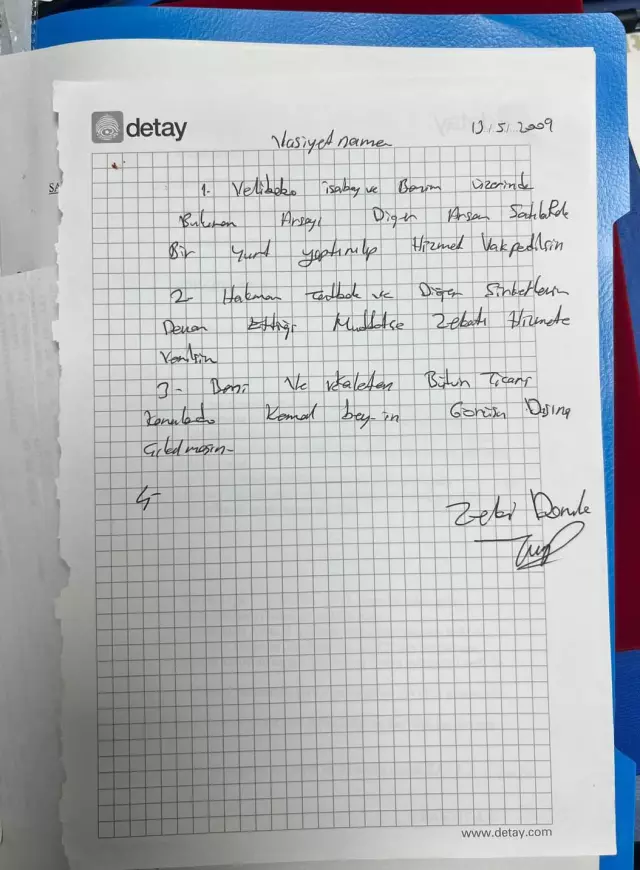 detay
13/5/2009
Vasiyet name
1. isabey ve Benim üzerinde
Bulunan Arsayı Diğer Arsam
Bir Yurt yaptırılıp Hizmet Vakpedilsin
2 ve Diğer Şirketlerin
Devam Ettiği Müddetçe Zekatı Hizmete
Verilsin
3- Beni Ve vekaleten Bütün Ticari
Konularda Kemal bey-in Görüşü Dışına
Çıkılmasın-
4-
Zeki
www.detay.com